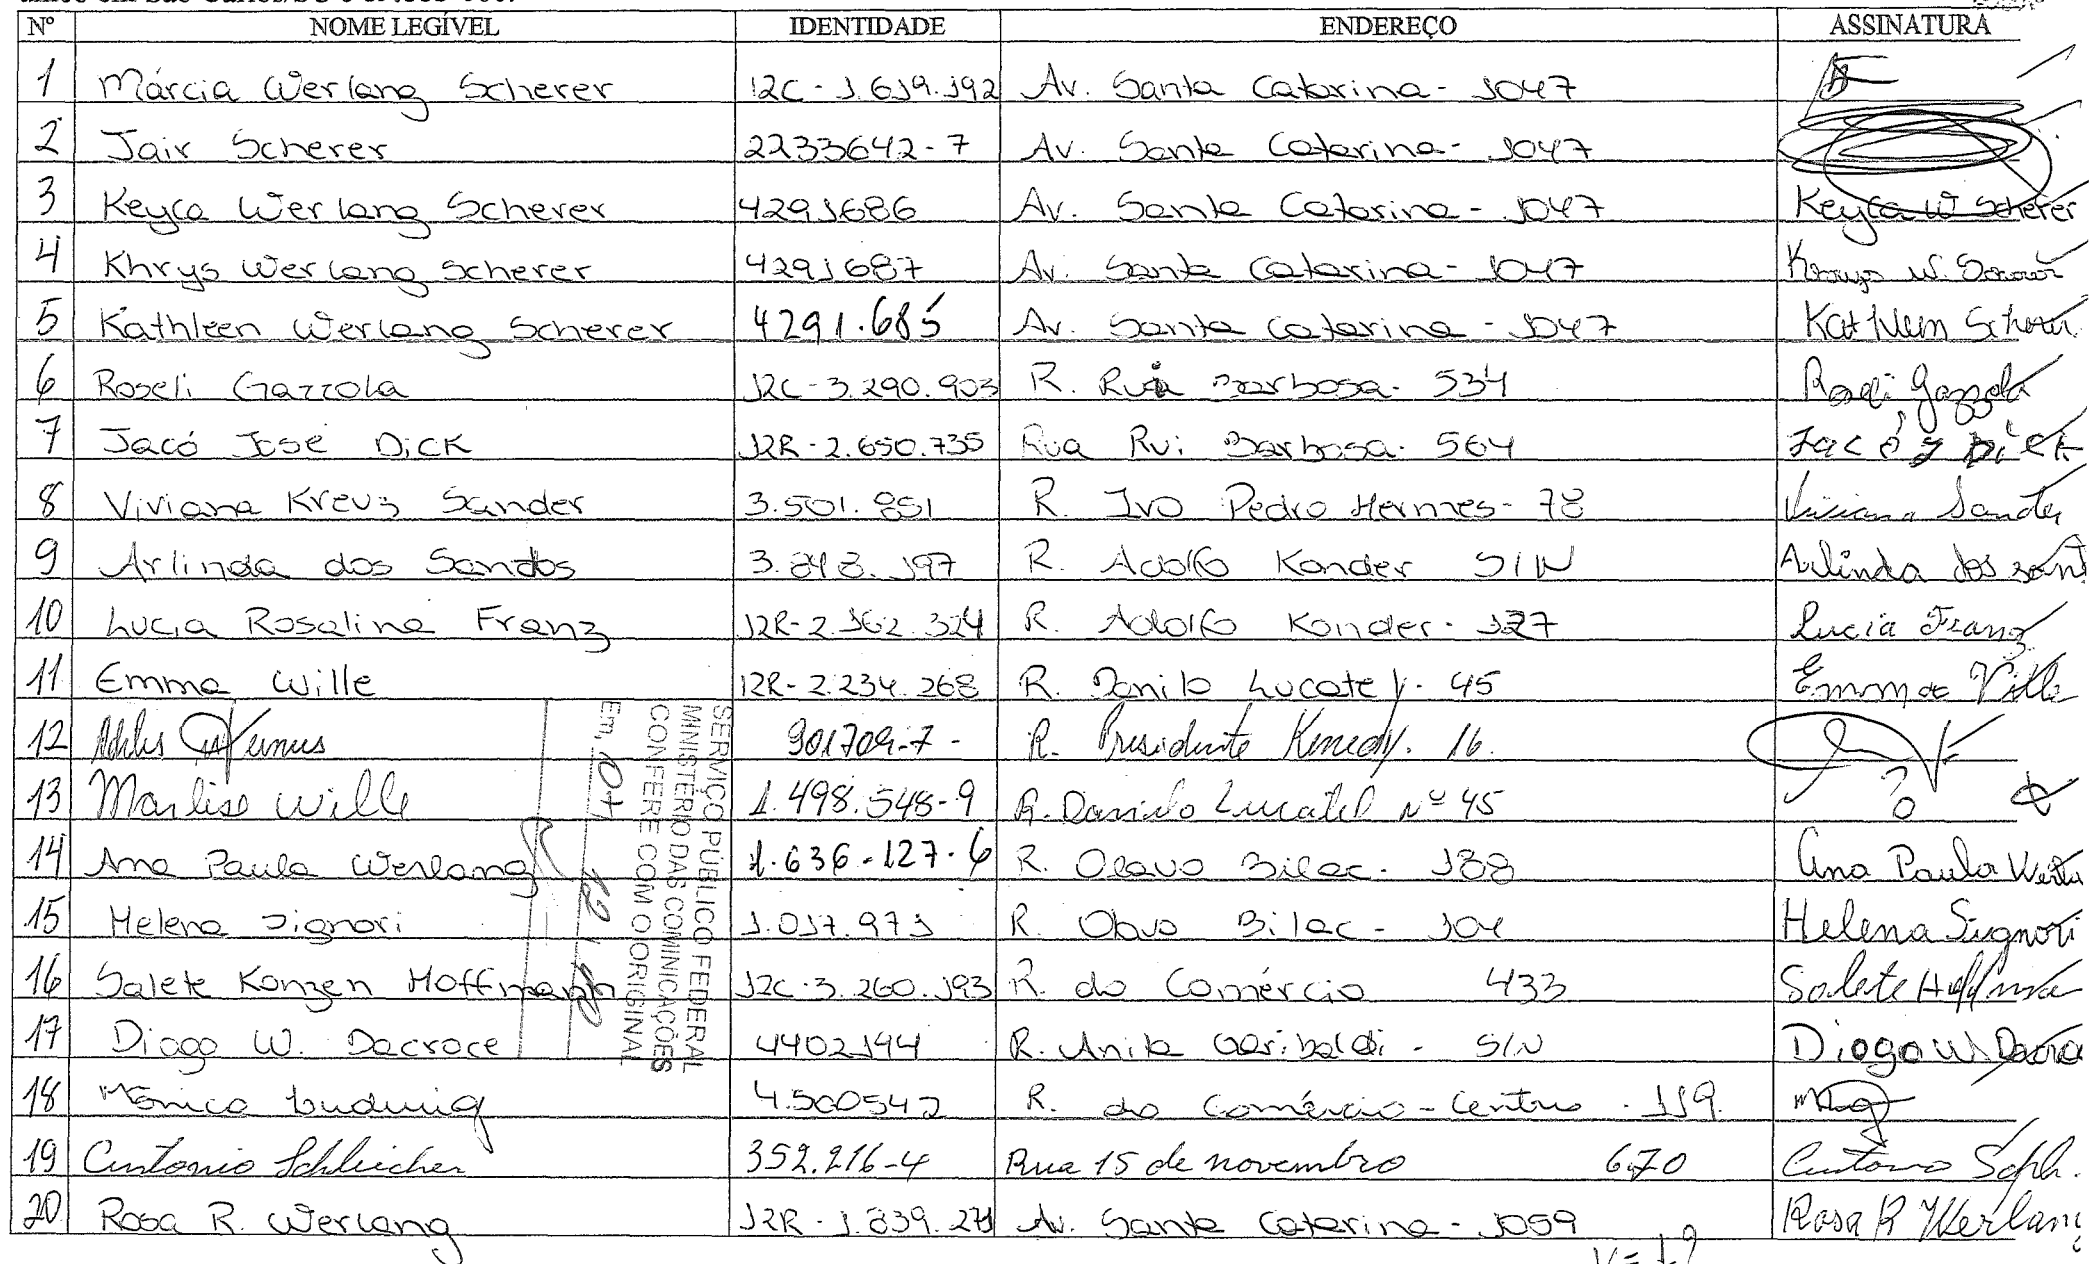 Nº NOME LEGÍVEL IDENTIDADE ENDEREÇO ASSINATURA
1 Márcia Werlang Scherer 12C-1.619.192 Av. Santa Catarina - 1047
2 Jair Scherer 2233642-7 Av. Santa Catarina - 1047
3 Keyca Werlang Scherer 4291686 Av. Santa Catarina - 1047 Keyca W Scherer
4 Khrys Werlang Scherer 4291687 Av. Santa Catarina - 1047
5 Kathleen Werlang Scherer 4291.685 Av. Santa Catarina - 1047 Kathleen Scherer
6 Roseli Gazzola 12C-3.290.903 R. Rui Barbosa - 534 Roseli Gazzola
7 Jacó José Dick 12R-2.650.735 Rua Rui Barbosa - 564 Jacó J Dick
8 Viviana Kreuz Sander 3.501.851 R. Ivo Pedro Hermes - 78 Viviana Sander
9 Arlinda dos Santos R. Adolfo Konder S/N Arlinda dos sant
10 Lucia Rosalina Franz 12R-2.162.324 R. Adolfo Konder - 127 Lucia Franz
11 Emma Wille 12R-2.234.268 R. Danilo Lucatel - 45 Emma Wille
12 901709-7 - R. Presidente Kenedy. 16.
13 Marlise Wille 1.498.548-9 R. Danilo Lucatel Nº 45
14 Ana Paula Werlang 1.636-127-6 R. Olavo Bilac - 188 Ana Paula Werla
15 Helena Signori 1.017.971 R. Olavo Bilac - Helena Signori
16 Salete Konzen Hoffmann 12C-3.260.193 R. do Comércio 433 Salete Hoffmann
17 Diogo W. Dacroce 4402144 R. Anita Garibaldi - S/N Diogo W Dacro
18 Mônica Ludwig R. do Comércio - Centro - 119.
19 Antonio Schleicher 352.216-4 Rua 15 de novembro 670 Antonio Schl.
20 Rosa R. Werlang 12R-1.839.271 Av. Santa Catarina - 1059 Rosa R Werlang
SERVIÇO PÚBLICO FEDERAL
MINISTÉRIO DAS COMINICAÇÕES
CONFERE COM O ORIGINAL
Em,
V = 19